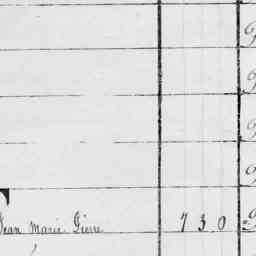 Jean Marie Pierre 7 3 0